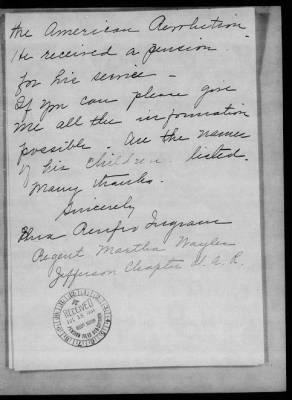 the American Revolution.
He received a pension
for his service -
If you can please give
me all the information
possible. Are the names
of his children listed.
Many thanks.
Sincerely
Renfro Ingram
Regent Martha Wayles
Jefferson Chapter D. A. R.
RECEIVED